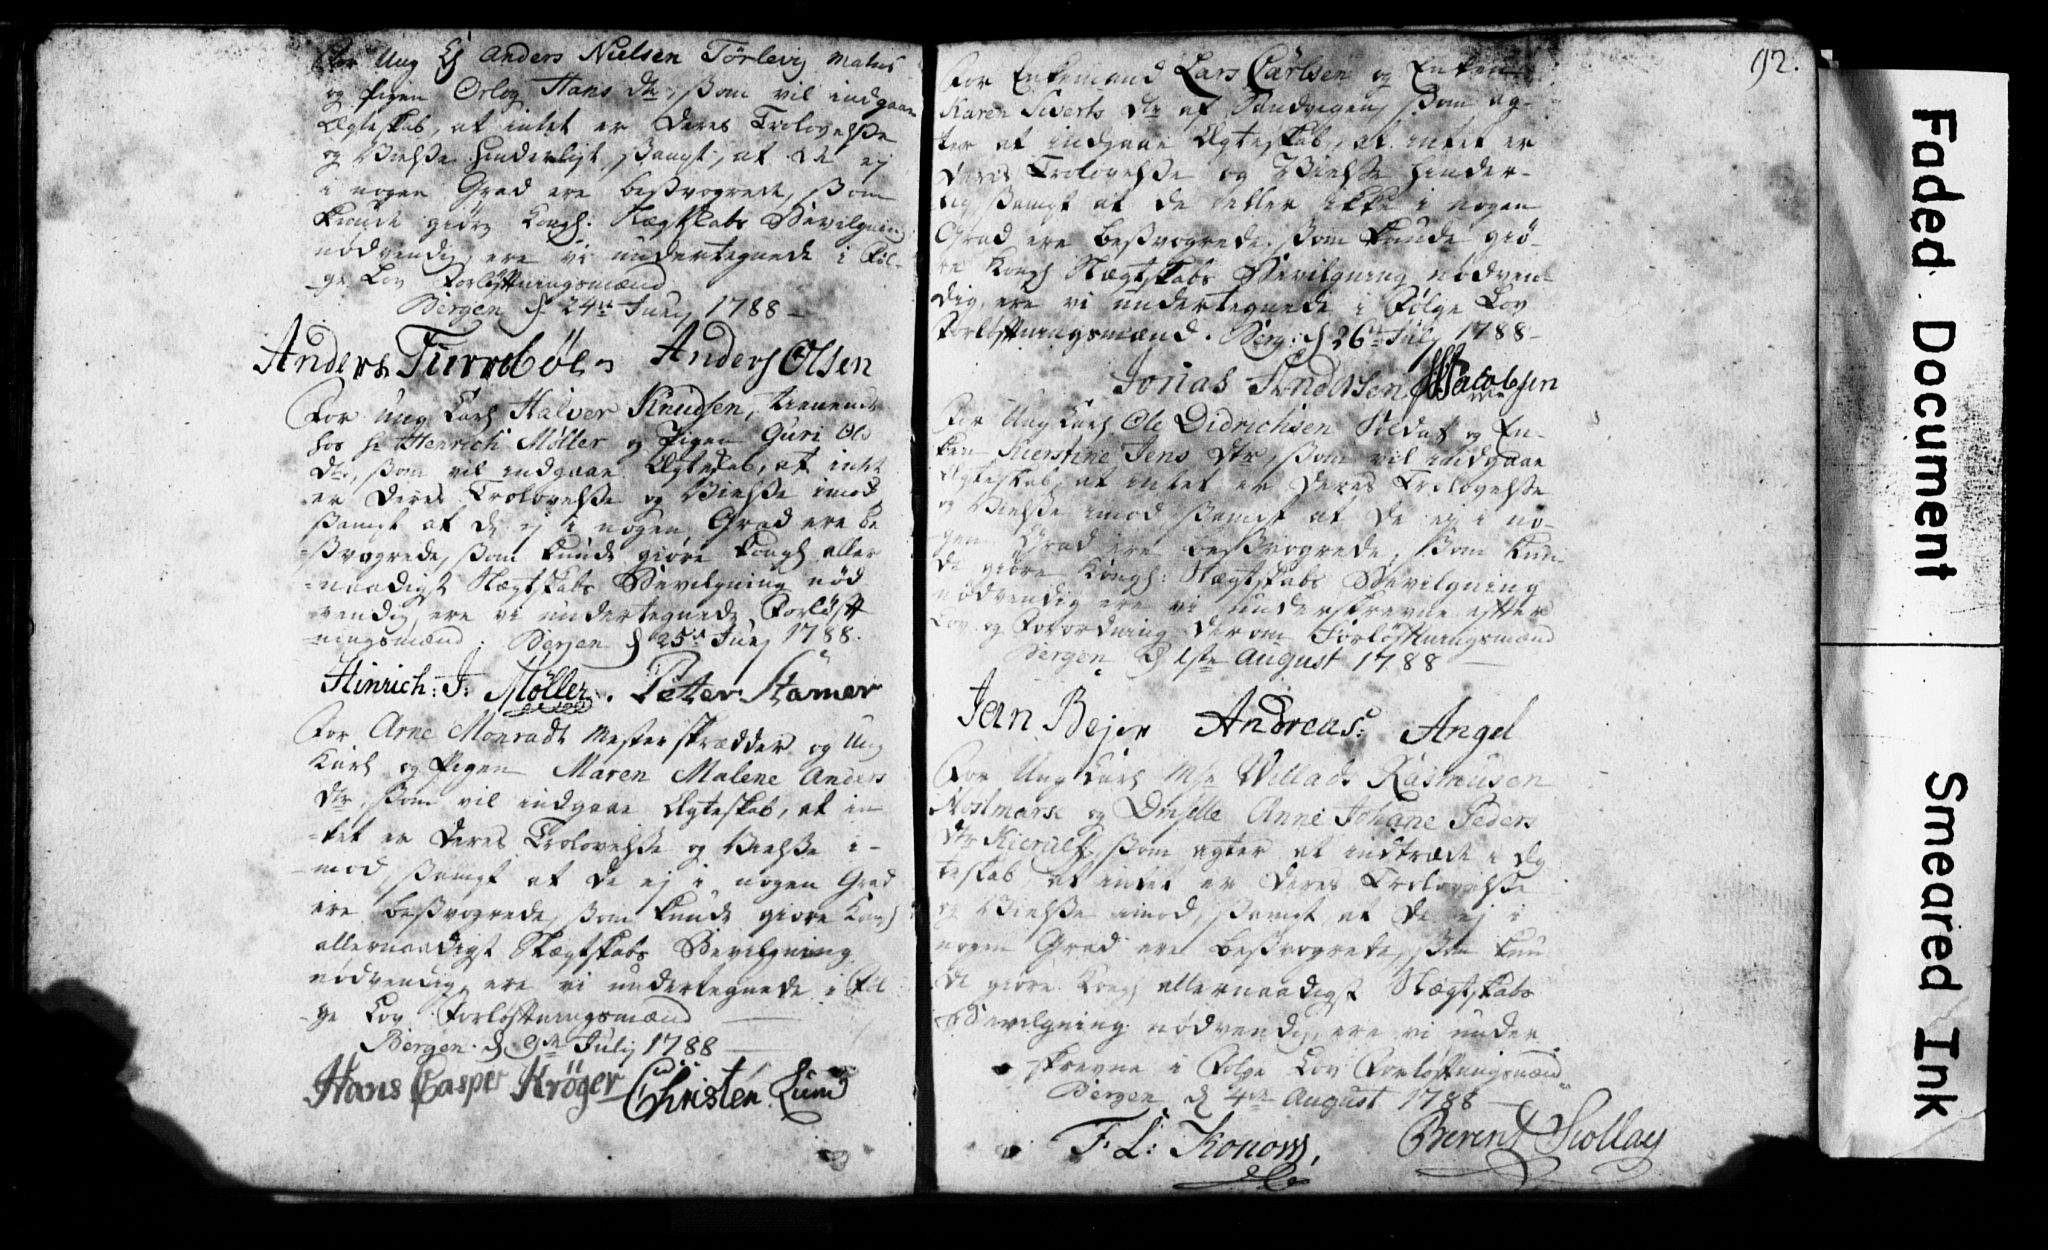 For Ung K. Anders Nielsen Törlevig Matros
og Pigen Orlog Hans Dtr, som vil indgaae
Ægteskab, at intet er deres Trolovelse
og Vielse hinderligt, samt, at de ej
i nogen Grad ere besvogrede, som
kunde giöre Kongl: Slægtskabs Bevilgning
nödvendig, ere vi undertegnede i Föl-
ge Lov Forlöftningsmænd
Bergen d 24de Junij 1788
Anders Olsen
For Ung Karl Halver Knudsen, tienende
hos Hr Henrich Möller og Pigen Guri Ols
Dtr, som vil indgaae Ægteskab, at intet
er deres Trolovelse og Vielse imod,
samt at de ej i nogen Grad ere be
svogrede, som kunde giöre Kongl aller
naadigst Slægtskabs Bevilgning nöd
vendig, ere vi undertegnede Forlöft
ningsmænd. Bergen d 25de Junij 1788.
Hinrich: J: Möller. Petter Stamer
For Arne Monradt Mester Skrædder og Ung
Karl og Pigen Maren Malene Anders
Dtr, som vil indgaae Ægteskab, at in
tet er deres Trolovelse og Vielse i-
mod, samt at de ej i nogen Grad
ere besvogrede, som kunde giöre Kongl
allernaadigst Slægtskabs Bevilgning
nödvendig, ere vi undertegnede i Föl
ge Lov Forlöftningsmænd
Bergen d 9de Julij 1788
Hans Casper Kröger Christen Lund
192.
For Enkemand Lars Carlsen og Enken
Karen Siverts Dtr af Sandvigen, som ag-
ter at indgaae Ægteskab, at intet er
deres Trolovelse og Vielse hinder-
lig samt at de heller ikke i nogen
Grad ere besvogrede, som kunde giö-
re Kongl Slægtskabs Bevilgning nödven-
dig, ere vi undertegnede i Fölge Lov
Forlöftningsmænd. Berg: d 26de Julij 1788
Jonas Jacobsen
For Ung Karl Ole Didrichsen Soldat og En-
ken Kierstine Jens Dtr, som vil indgaae
Ægteskab, at intet er deres Trolovelse
og Vielse imod samt at de ej i no-
gen Grad ere besvogrede, som kun
de giöre Kongl: Slægtskabs Bevilgning
nödvendig ere vi underskrevne efter
Lov og Forordning derom Forlöftningsmænd
Bergen d 1ste August 1788
Andreas: Angel
For Ung Karl Mr Villads Rasmusen
og Dmselle Anne Johane Peders
Dtr Kierulf, som agter at indtræde i Æg
teskab, at intet er deres Trolovelse
og Vielse imod, samt at de ej i
nogen Grad ere besvogrede, som kun
de giöre Kongl allernaadigst Slægtskabs
Bevilgning nödvendig, ere vi under
skrevne i Fölge Lov Forlöftningsmænd
Bergen d 4de August 1788
F: L: Konow, Berent
Faded Document
Smeared Ink